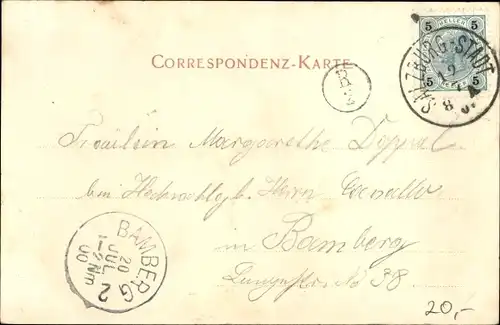 5 HELLER 5
5 HELLER 5
SALZBURG-STADT
12
8
CORRESPONDENZ-KARTE
Fräulein Margarethe
bei Hochwohlgb. Herrn
in Bamberg
No 38
BAMBERG 2
20
JUL
1-2Nm
00
20,-